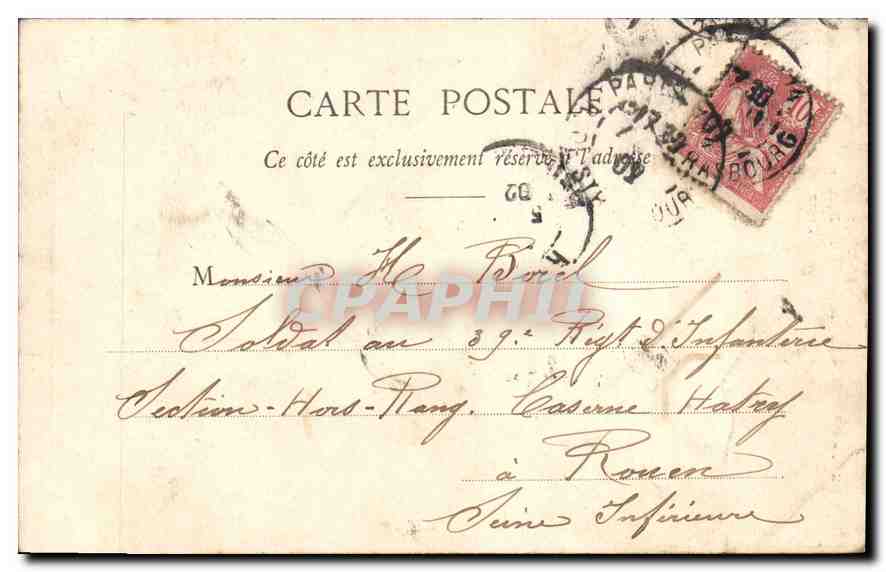 CARTE POSTALE
Ce côté est exclusivement réservé à l'adresse
PARIS
BOURG
02
Monsieur H Borel
CPAPHIL
Soldat au 39e Régt d'Infanterie
Section-Hors-Rang. Caserne Hatry
à Rouen
Seine Inférieure